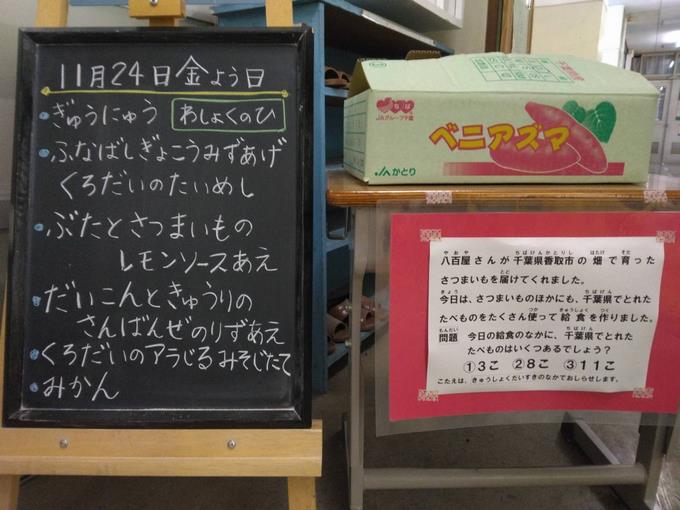 11月24日金よう日
・ぎゅうにゅう わしょくのひ
・ふなばしぎょこうみずあげ
くろだいのたいめし
・ぶたとさつまいもの
レモンソースあえ
・だいこんときゅうりの
さんばんぜのりずあえ
・くろだいのアラじるみそじたて
・みかん
ちば
JAグループ千葉
ベニアズマ
JAかとり
八百屋さんが千葉県香取市の畑で育った
さつまいもを届けてくれました。
今日は、さつまいものほかにも、千葉県でとれた
たべものをたくさん使って給食を作りました。
問題 今日の給食のなかに、千葉県でとれた
たべものはいくつあるでしょう？
①3こ ②8こ ③11こ
こたえは、きゅうしょくだいすきのなかでおしらせします。